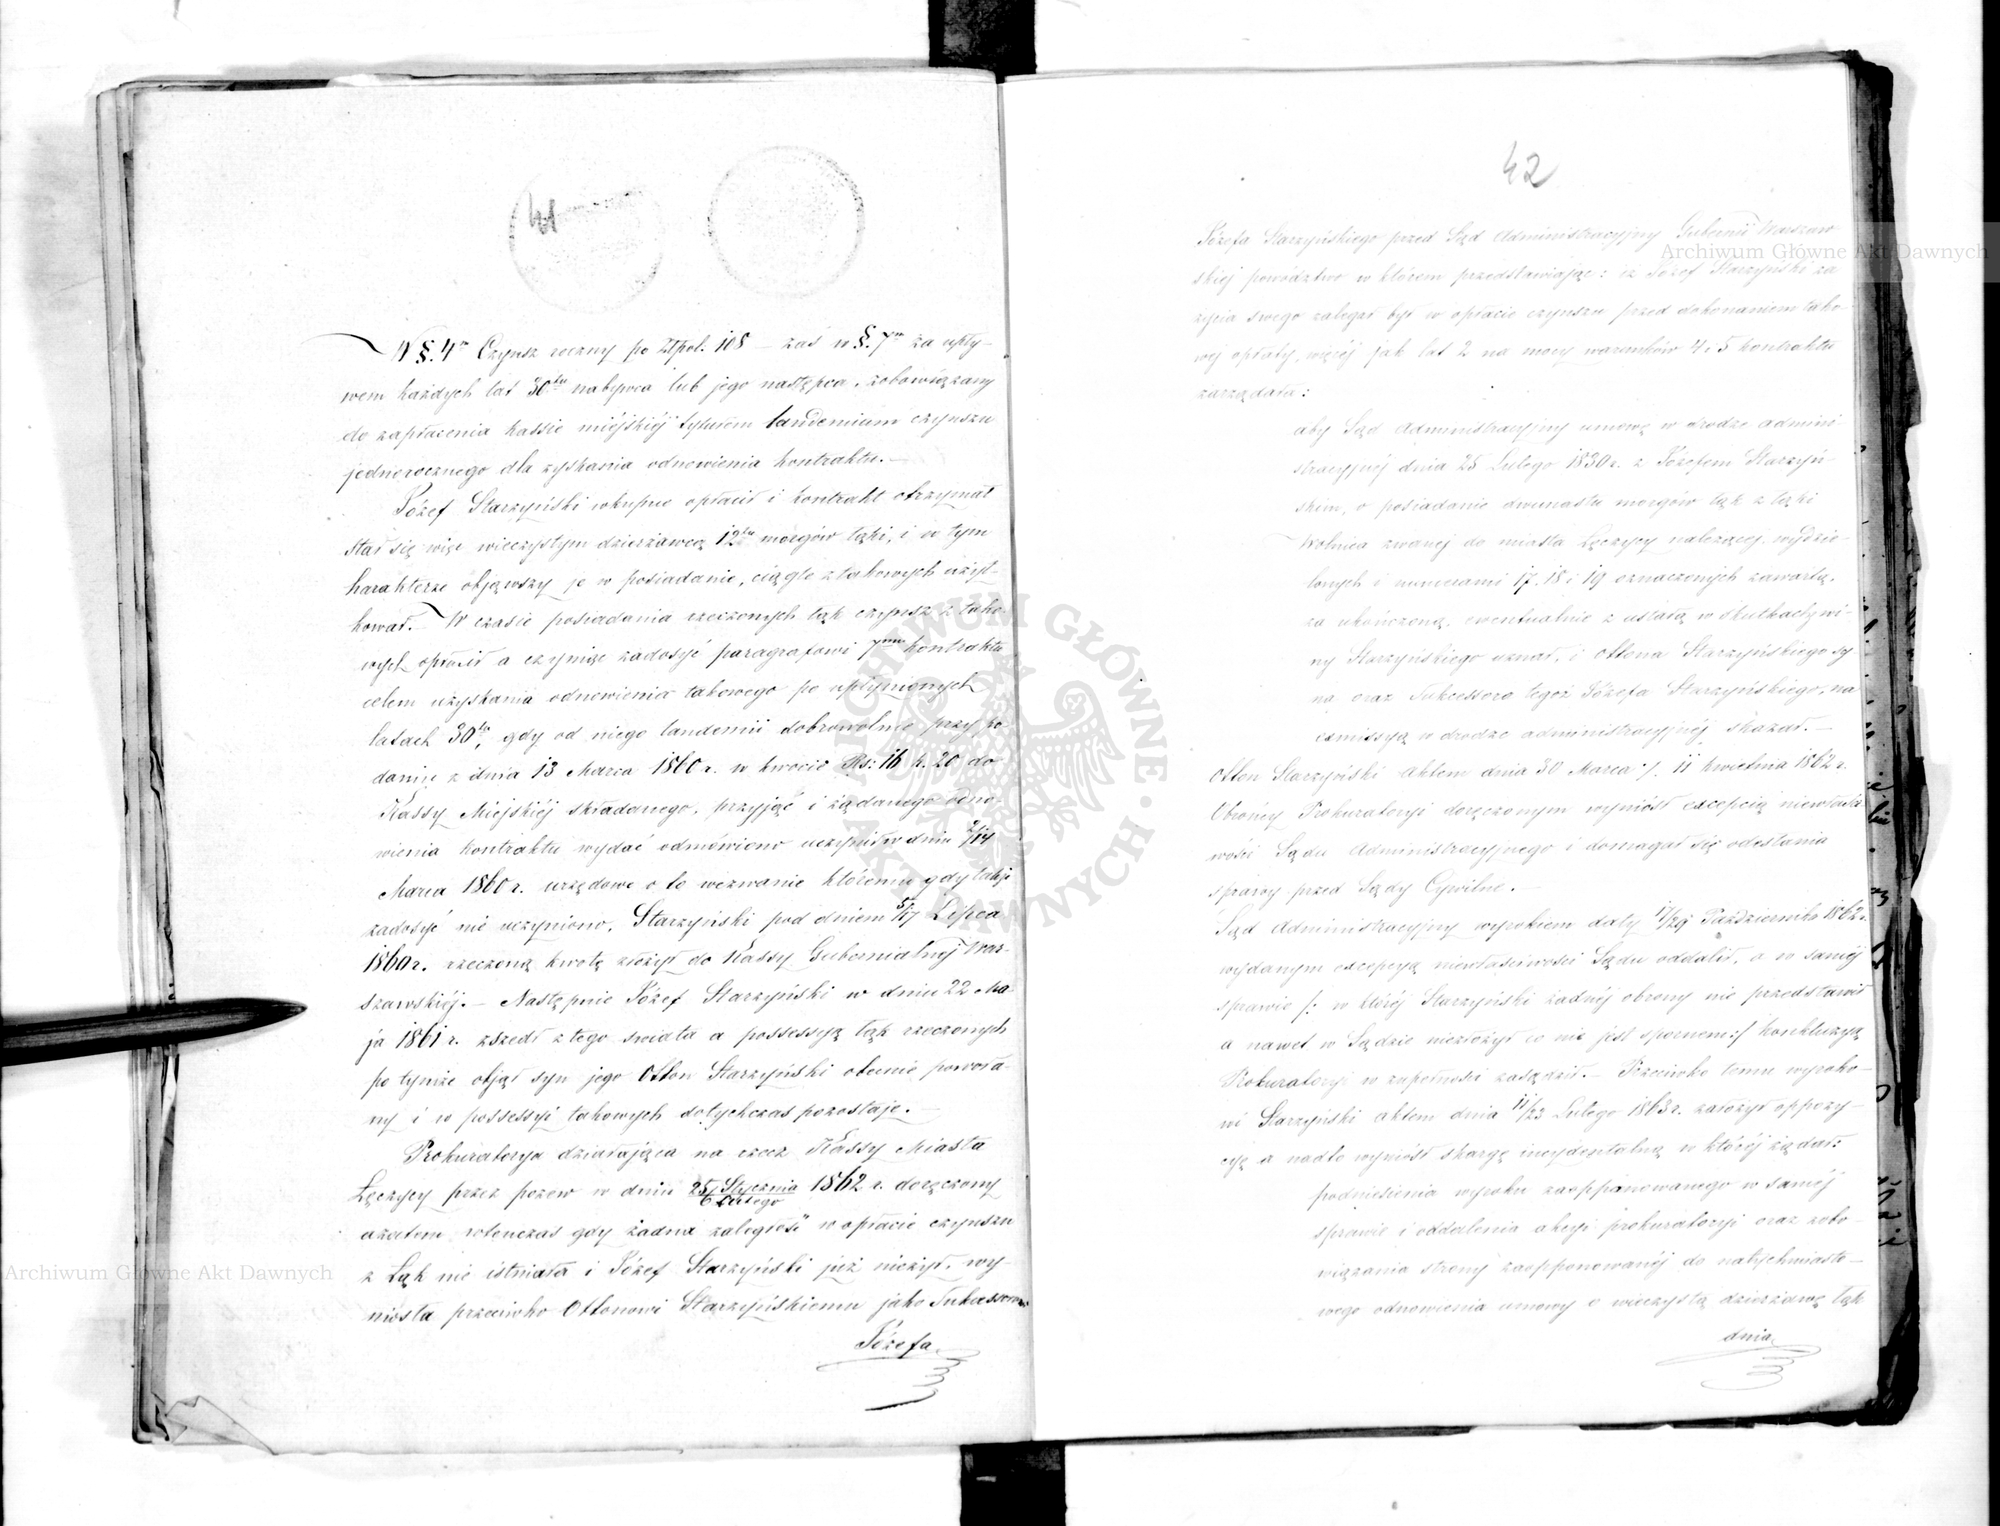 41
W §. 4m Czynsz roczny po Złpol: 108 — zaś w §. 7m za upły-
wem każdych lat 30tu nabywca lub jego następca, zobowiązany
do zapłacenia kassie miéjskiéj tytułem laudemium czynszu
jednorocznego dla zyskania odnowienia kontraktu. —
Józef Starzyński wkupne opłacił i kontrakt otrzymał
stał się więc wieczystym dzierżawcą 12tu morgów łąki, i w tym
charakterze objąwszy je w posiadanie, ciągle z takowych użyt-
kował. — W czasie posiadania rzeczonych łąk czynsz z tako-
wych opłacił a czyniąc zadosyć paragrafowi 7mu kontraktu
celem uzyskania odnowienia takowego po upłynionych
latach 30tu, gdy od niego laudemii dobrowolnie przy po-
daniu z dnia 13 Marca 1860 r. w kwocie Rs: 16 k. 20 do
Kassy Miejskiéj składanego, przyjąć i żądanego odno-
wienia kontraktu wydać odmówiono uczynił w dniu 2/14
Marca 1860 r. urzędowe o to wezwanie któremu gdy także
zadosyć nie uczyniono, Starzyński pod dniem 5/17 Lipca
1860 r. rzeczoną kwotę złożył do Kassy Gubernialnéj War-
szawskiéj. — Następnie Józef Starzyński w dniu 22 Ma-
ja 1861 r. zszedł z tego świata a possessyą łąk rzeczonych
po tymże objął syn jego Otton Starzyński obecnie powoła-
ny i w possessyi takowych dotychczas pozostaje. —
Prokuratorya działająca na rzecz Kassy Miasta
Łęczycy przez pozew w dniu 25 Stycznia / 6 Lutego 1862 r. doręczony
a zatem wtenczas gdy żadna zaległość w opłacie czynszu
z Łąk nie istniała i Józef Starzyński już nieżył, wy-
niosła przeciwko Ottonowi Starzyńskiemu jako Sukcessorowi
Józefa
42
Józefa Starzyńskiego przed Sąd Administracyjny Gubernii Warszaw
skiéj powództwo w którem przedstawiając: iż Józef Starzyński za
życia swego zaległ był w opłacie czynszu przed dokonaniem tako-
wéj opłaty, więcéj jak lat 2 na mocy warunków 4 i 5 kontraktu
zażądała:
aby Sąd Administracyjny umowę w drodze admini-
stracyjnéj dnia 25 Lutego 1830 r. z Józefem Starzyń-
skim, o posiadanie dwunastu morgów łąk z łąki
Wolnica zwanéj do miasta Łęczycy należącéj wydzie-
lonych i numerami 17. 18 i 19 oznaczonych zawartą,
za ukończoną, ewentualnie z ustałą w skutkach z wi-
ny Starzyńskiego uznał, i Ottona Starzyńskiego sy
na oraz Sukcessora tegoż Józefa Starzyńskiego, na
exmissyą w drodze administracyjnéj skazał. —
Otton Starzyński aktem dnia 30 Marca /. 11 kwietnia 1862 r.
Obrońcy Prokuratoryi doręczonym wyniósł excepcią niewłaści
wości Sądu Administracyjnego i domagał się odesłania
sprawy przed Sądy Cywilne. —
Sąd Administracyjny wyrokiem daty 17/29 Października 1862 r.
wydanym excepcyą niewłaściwości Sądu oddalił, a w saméj
sprawie /: w któréj Starzyński żadnéj obrony nie przedstawił
a nawet w Sądzie niezłożył co nie jest spornem :/ konkluzyą
Prokuratoryi w zupełności zasądził. — Przeciwko temu wyroko-
wi Starzyński aktem dnia 11/23 Lutego 1863 r. założył oppozy-
cyę a nadto wyniósł skargę incydentalną w któréj żądał:
podniesienia wyroku zaopponowanego w saméj
sprawie i oddalenia akcyi prokuratoryi oraz zobo-
wiązania strony zaopponowanéj do natychmiasto-
wego odnowienia umowy o wieczystą dzierżawę łąk
dnia
Archiwum Główne Akt Dawnych
Archiwum Główne Akt Dawnych
ARCHIWUM GŁÓWNE AKT DAWNYCH